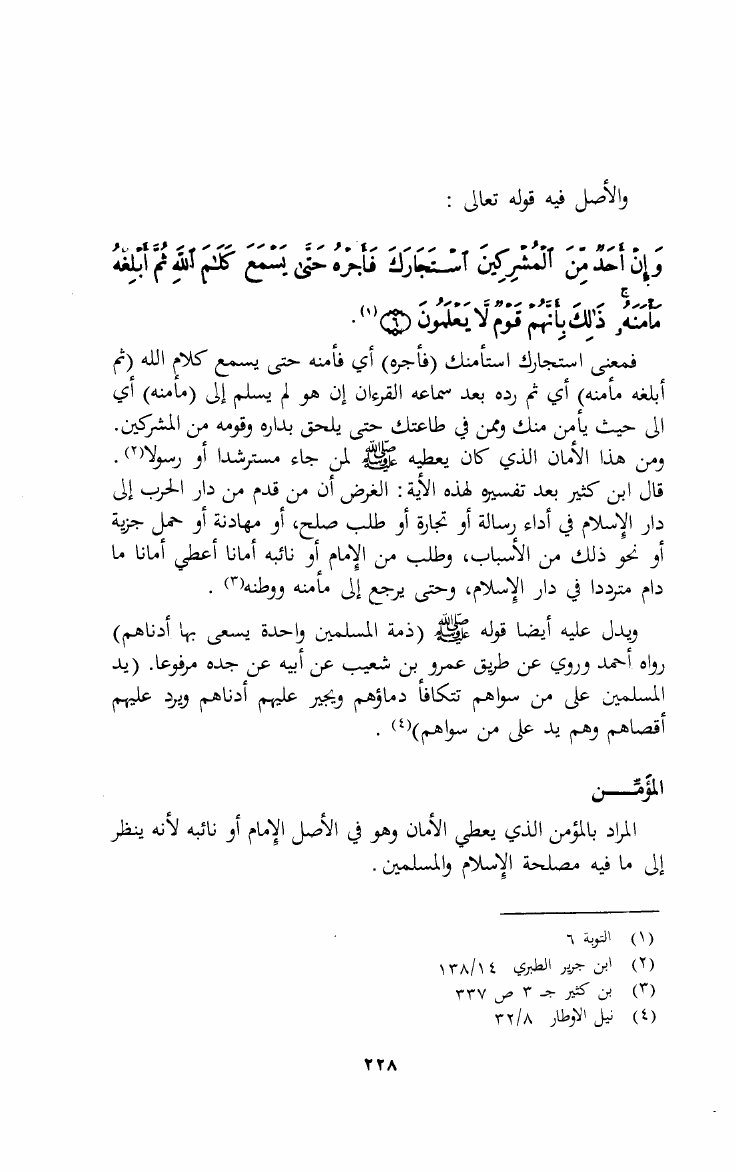 والأصل فيه قوله تعالى :
وَإِنْ أَحَدٌ مِّنَ ٱلْمُشْرِكِينَ ٱسْتَجَارَكَ فَأَجِرْهُ حَتَّىٰ يَسْمَعَ كَلَٰمَ ٱللَّهِ ثُمَّ أَبْلِغْهُ
مَأْمَنَهُۥۚ ذَٰلِكَ بِأَنَّهُمْ قَوْمٌ لَّا يَعْلَمُونَ ۝٦ (١).
فمعنى استجارك استأمنك (فأجره) أي فأمنه حتى يسمع كلام الله (ثم
أبلغه مأمنه) أي ثم رده بعد سماعه القرءان إن هو لم يسلم إلى (مأمنه) أي
الى حيث يأمن منك وممن في طاعتك حتى يلحق بداره وقومه من المشركين.
ومن هذا الأمان الذي كان يعطيه ﷺ لمن جاء مسترشدا أو رسولا(٢).
قال ابن كثير بعد تفسيره لهذه الأية: الغرض أن من قدم من دار الحرب إلى
دار الإسلام في أداء رسالة أو تجارة أو طلب صلح، أو مهادنة أو حمل جزية
أو نحو ذلك من الأسباب، وطلب من الإمام أو نائبه أمانا أعطي أمانا ما
دام مترددا في دار الإسلام، وحتى يرجع إلى مأمنه ووطنه(٣) .
ويدل عليه أيضا قوله ﷺ (ذمة المسلمين واحدة يسعى بها أدناهم)
رواه أحمد وروي عن طريق عمرو بن شعيب عن أبيه عن جده مرفوعا. (يد
المسلمين على من سواهم تتكافأ دماؤهم ويجير عليهم أدناهم ويرد عليهم
أقصاهم وهم يد على من سواهم)(٤) .
المُؤَمِّــــن
المراد بالمؤمن الذي يعطي الأمان وهو في الأصل الإمام أو نائبه لأنه ينظر
إلى ما فيه مصلحة الإسلام والمسلمين.
(١) التوبة ٦
(٢) ابن جرير الطبري ١٣٨/١٤
(٣) بن كثير جـ ٣ ص ٣٣٧
(٤) نيل الاوطار ٣٢/٨
٢٢٨